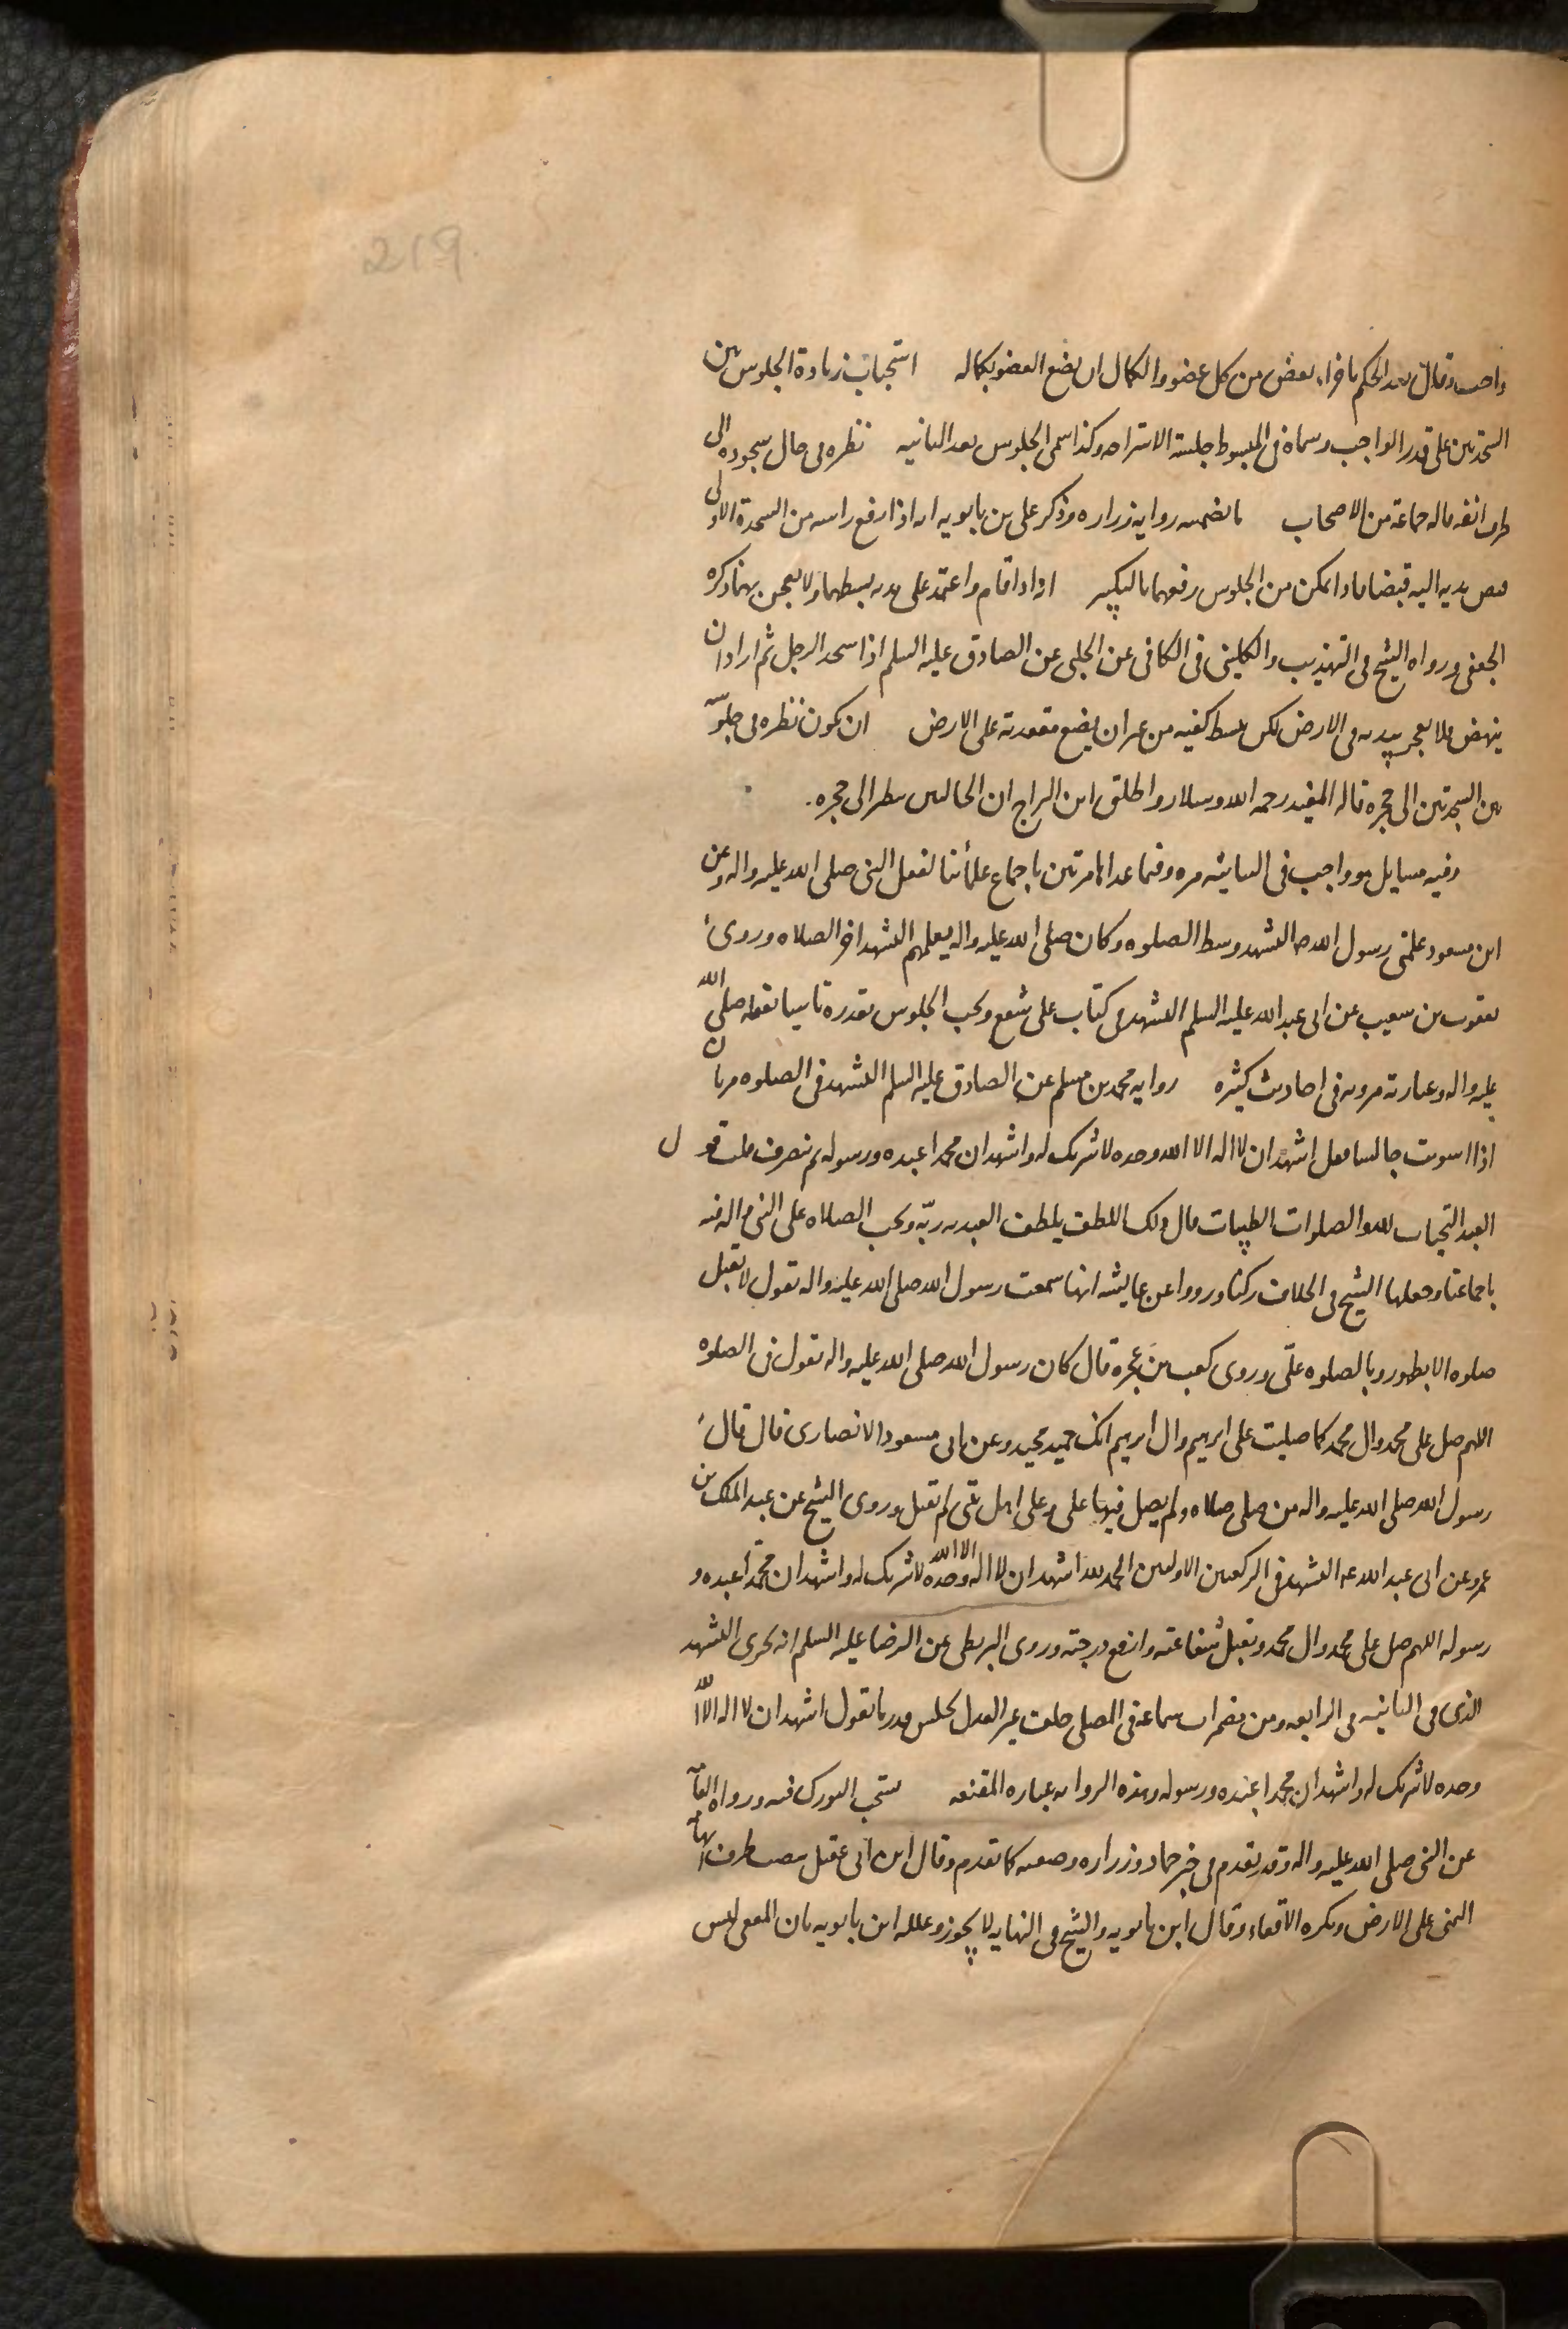 219
واحب وقال بعد الحكم باجزاء بعض من كل عضو والكمال ان يضع العضو بكماله استحباب زيادة الجلوس بين
السجدتين على قدر الواجب وسماه في المبسوط جلسة الاستراحه وكذا سمى الجلوس بعد الثانيه نظره في حال سجوده الى
طرف انفه قاله جماعة من الاصحاب ما تضمنه روايه زراره وذكر على بن بابويه انه اذا رفع راسه من السجدة الاولى
قبض يديه اليه قبضا فاذا تمكن من الجلوس رفعهما بالتكبير انه اذا قام واعتمد على يديه بسطهما ولا يعجن بهما ذكره
الجعفى ورواه الشيخ في التهذيب والكلينى في الكافى عن الحلبى عن الصادق عليه السلم اذا سجد الرجل ثم اراد ان
ينهض فلا يعجن بيديه في الارض لكن يبسط كفيه من غير ان يضع مقعدته على الارض ان يكون نظره في جلوسه
بين السجدتين الى حجره قاله المفيد رحمه الله وسلار واطلق ابن البراج ان الجالس ينظر الى حجره.
وفيه مسايل هو واجب في الثنائيه مره وفيما عداها مرتين باجماع علمأئنا لفعل النبى صلى الله عليه واله وعن
ابن مسعود علمنى رسول الله ص التشهد وسط الصلوه وكان صلى الله عليه واله يعلمهم التشهد اخر الصلاه وروى
يعقوب بن شعيب عن ابى عبد الله عليه السلم التشهد في كتاب على شفع ويجب الجلوس بقدره تاسيا بفعله صلى الله
عليه واله وعبارته مرويه في احاديث كثيره روايه محمد بن مسلم عن الصادق عليه السلم التشهد في الصلوه مرتان
اذا استويت جالسا فقل اشهد ان لا اله الا الله وحده لا شريك له واشهد ان محمدا عبده ورسوله ثم تنصرف قلت قول
العبد التحيات لله والصلوات الطيبات قال ذلك اللطف يلطف العبد به ربّه ويجب الصلاه على النبى واله فيه
باجماعنا وجعلها الشيخ في الخلاف ركنا ورووا عن عايشه انها سمعت رسول الله صلى الله عليه واله يقول لا تقبل
صلوه الا بطهور وبالصلوه علىّ وروى كعب بن عجره قال كان رسول الله صلى الله عليه واله يقول في الصلوه
اللهم صل على محمد وال محمد كما صليت على ابرهيم وال ابرهيم انك حميد مجيد وعن ابى مسعود الانصارى قال قال
رسول الله صلى الله عليه واله من صلى صلاه ولم يصل فيها على وعلى اهل بيتى لم تقبل وروى الشيخ عن عبد الملك بن
عمرو عن ابى عبد الله عه التشهد في الركعتين الاولتين الحمد لله اشهد ان لا اله الا الله وحده لا شريك له واشهد ان محمّدا عبده و
رسوله اللهم صل على محمد وال محمد وتقبل شفاعته وارفع درجته وروى البزنطى عن الرضا عليه السلم انه يجزى التشهد
الذى في الثانيه في الرابعه ومن مضمرات سماعه في المصلى خلف غير العدل يجلس قدر ما يقول اشهد ان لا اله الا الله
وحده لا شريك له واشهد ان محمدا عبده ورسوله وهذه الروايه عباره المقنعه يستحب التورك فيه ورواه العامه
عن النبى صلى الله عليه واله وقد تقدم في خبر حماد وزراره وصفته كما تقدم وقال ابن ابى عقيل ينصب طرف ابهام
اليمنى على الارض ويكره الاقعاء وقال ابن بابويه والشيخ في النهايه لا يجوز وعلله ابن بابويه بان المقعى ليس